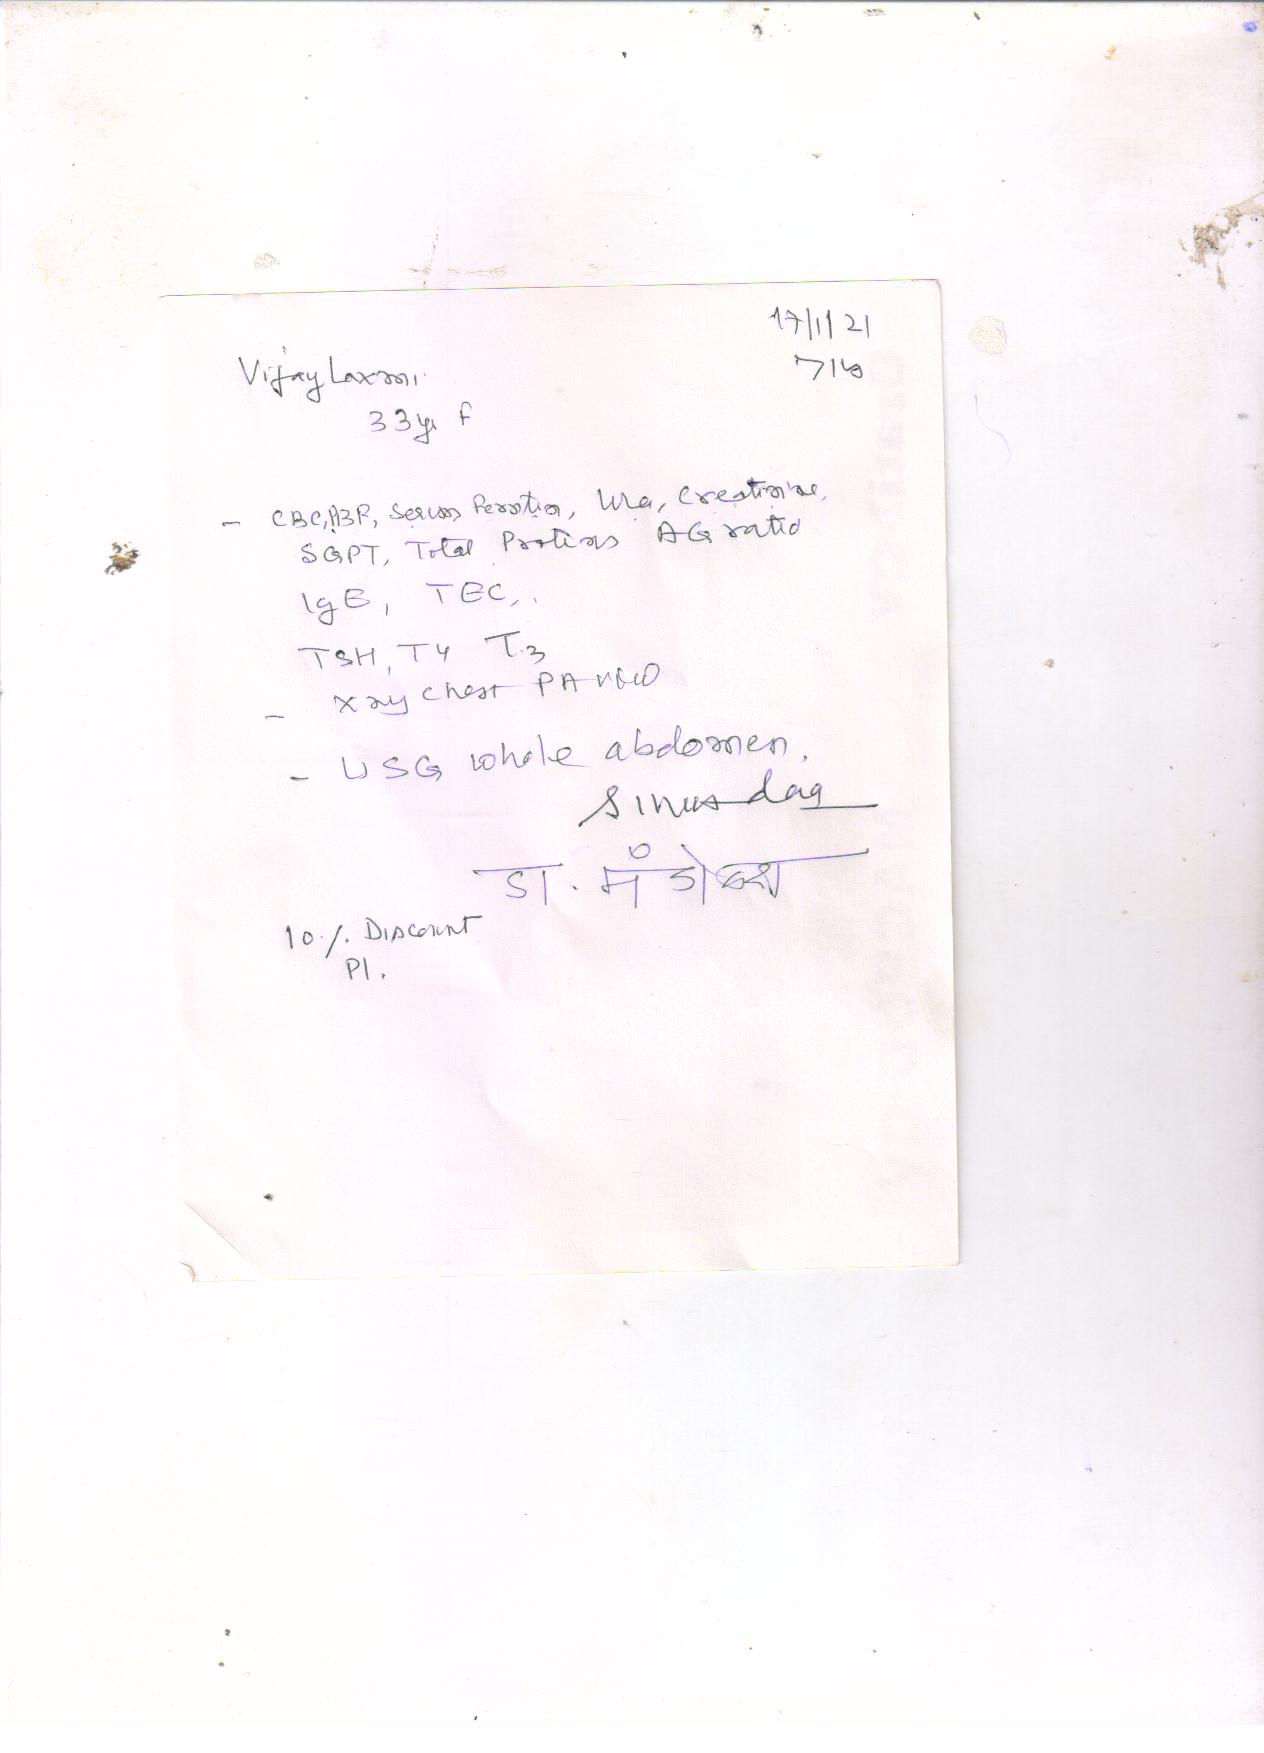 17/1/21
Vijay Laxmi.
33yr f
- CBC, ABR, Serum Ferritin, Urea, Creatinine,
SGPT, Total Protins AG ratio
IgE, TEC,
TSH, T4 T3
- Xray Chest PA view
- USG whole abdomen.
डा.
10% Discount
Pl.